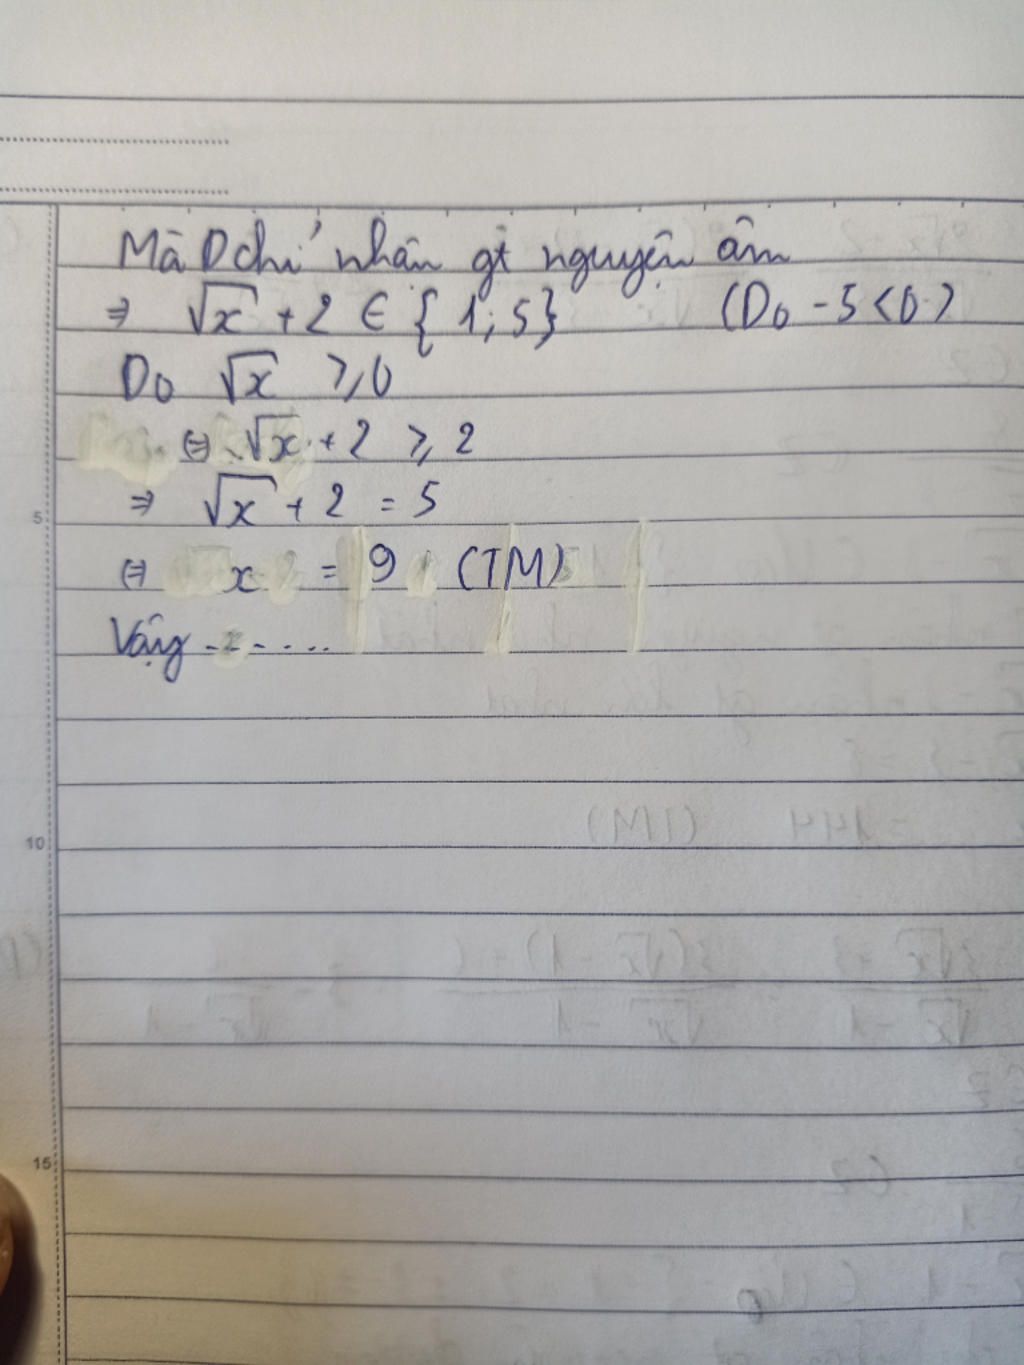 Mà D chỉ nhận gt nguyên âm
⇒ √x + 2 ∈ {1; 5} (Do -5 < 0)
Do √x ≥ 0
⇔ √x + 2 ≥ 2
⇒ √x + 2 = 5
5
⇔ x = 9 (TM)
Vậy .......
10
15